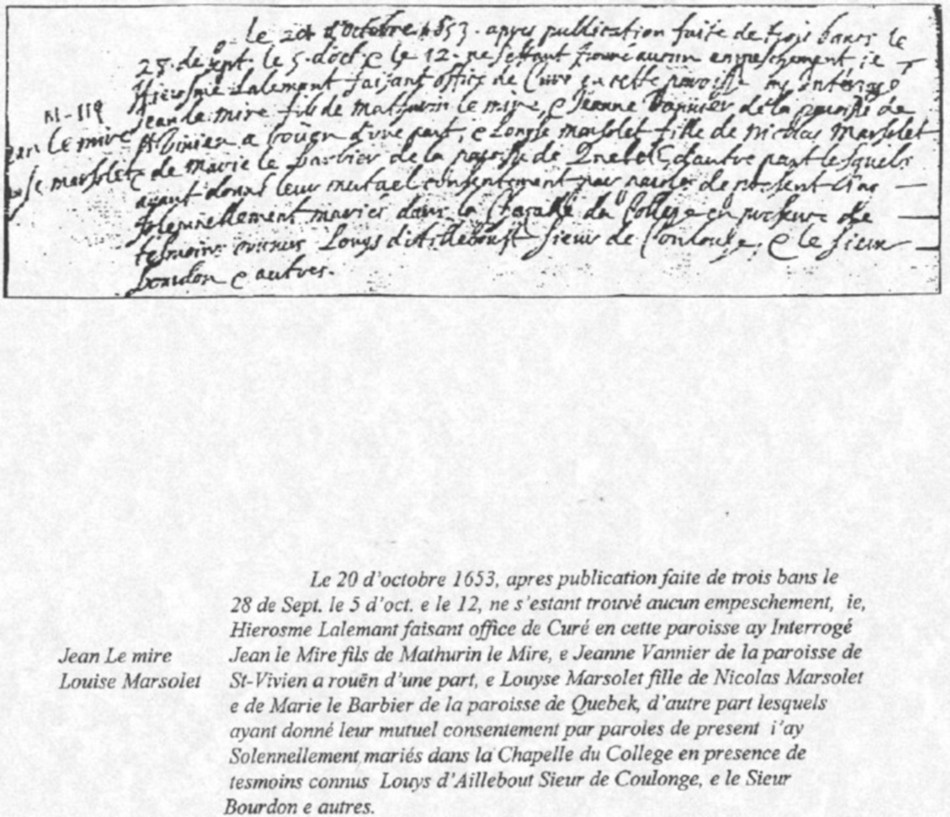 Le 20 d'octobre 1653. apres publication faite de trois bans le
28. de sept. le 5. d'oct. e le 12. ne s'estant trouvé aucun empeschement, ie
Hierosme Lalemant faisant office de Curé en cette paroisse ay Interrogé
M-119
Jean le mire fils de Mathurin le mire, e Jeanne Vannier de la paroisse de
Jean Le mire
St Vivien a rouen d'une part, e Louyse Marsolet fille de Nicolas Marsolet
marsolet
e de Marie le barbier de la paroisse de Quebek, d'autre part lesquels
ayant donné leur mutuel consentement par paroles de present
solennellement mariés dans la Chapelle du College en presence de
tesmoins connus Louys d'Ailleboust sieur de Coulonge, e le sieur
bourdon e autres.
Le 20 d'octobre 1653, apres publication faite de trois bans le
28 de Sept. le 5 d'oct. e le 12, ne s'estant trouvé aucun empeschement, ie,
Hierosme Lalemant faisant office de Curé en cette paroisse ay Interrogé
Jean Le mire
Jean le Mire fils de Mathurin le Mire, e Jeanne Vannier de la paroisse de
Louise Marsolet
St-Vivien a rouën d'une part, e Louyse Marsolet fille de Nicolas Marsolet
e de Marie le Barbier de la paroisse de Quebek, d'autre part lesquels
ayant donné leur mutuel consentement par paroles de present i'ay
Solennellement mariés dans la Chapelle du College en presence de
tesmoins connus Louys d'Aillebout Sieur de Coulonge, e le Sieur
Bourdon e autres.